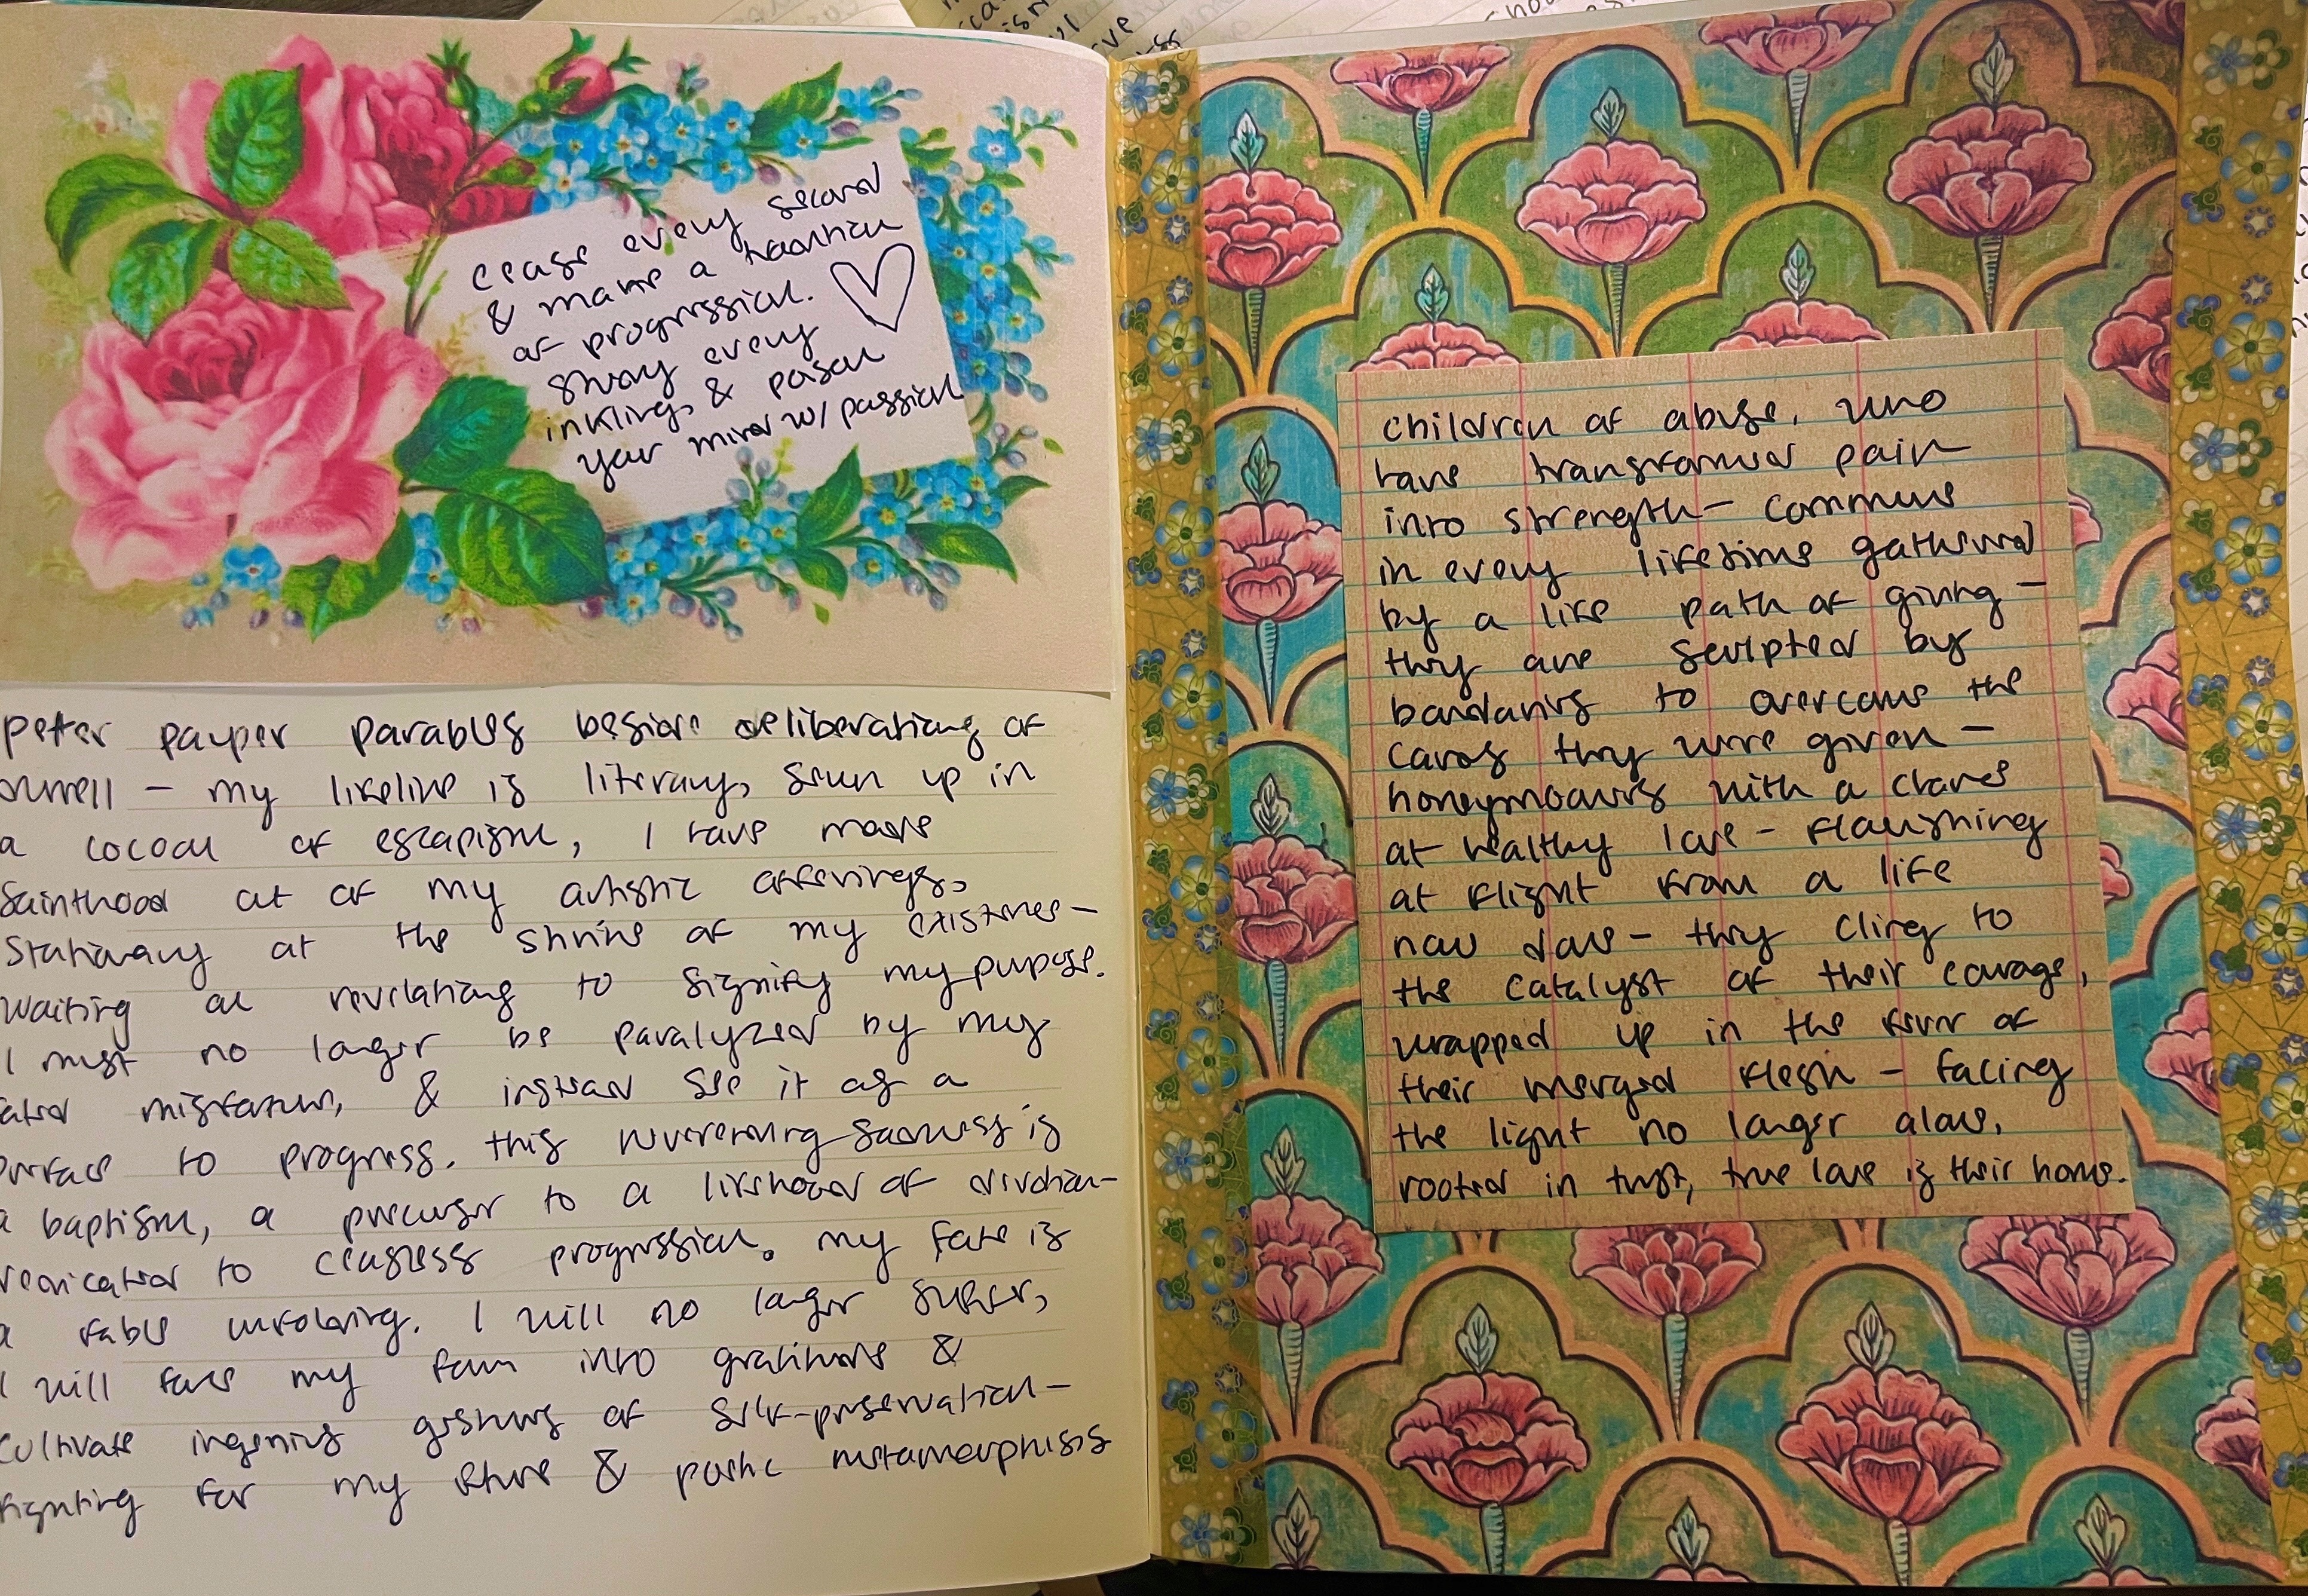 cease every second
& make a tradition
of progression.
sway every
inkling, & poison
your mind w/ passion
peter pauper parables beside deliberations of
orwell – my lifeline is literacy, sewn up in
a cocoon of escapism, I have made
sainthood out of my artistic offerings,
stationary at the shrine of my existence –
waiting on revelations to signify my pupose.
I must no longer be paralyzed by my
fated misfortune, & instead see it as a
preface to progress. this neverending sadness is
a baptism, a precursor to a likelihood of devotion –
dedicated to ceaseless progression. my fate is
a fable unfolding. I will no longer suffer,
I will fall my form into gratitude &
cultivate ingenius gestures of self-preservation –
fighting for my future & poetic metamorphisis
children of abuse, who
have transformed pain
into strength – commune
in every lifetime gathered
by a like path of giving –
they are sculpted by
boundaries to overcome the
cards they were given –
honeymooners with a chance
at healthy love – flourishing
at flight from a life
now done – they cling to
the catalyst of their courage,
wrapped up in the fever of
their merged flesh – facing
the light no longer alone.
rooted in trust, true love is their home.